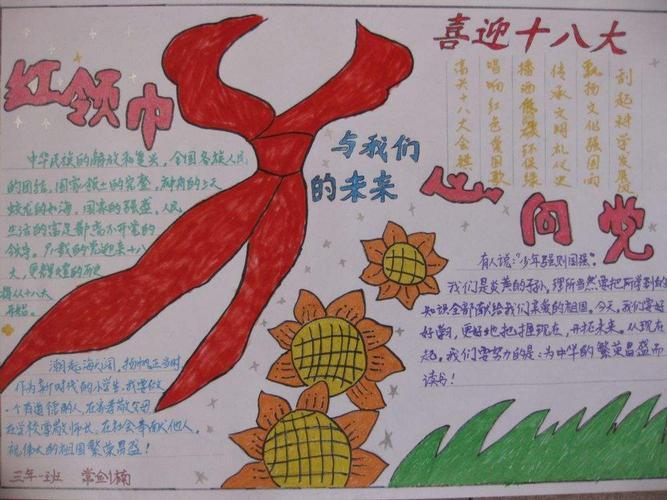 红领巾
喜迎十八大
刮起科学发展风
飘扬文化强国雨
传承文明礼仪史
播洒环保绿
唱响红色爱国歌
高兴十八大会
与我们
的未来
心向党
中华民族的解放和复兴，全国各族人民
的团结，国家领土的完整，神舟的上天
蛟龙的入海，国家的强盛，人民
生活的富足都离不开党的
领导。党迎来十八
大，更辉煌的历史
将从十八大
开始。
潮起海天阔，扬帆正当时
作为新时代的小学生，我要做
一个有道德的人，在家孝敬父母
在学校尊敬师长，在社会奉献他人。
祝伟大的祖国繁荣昌盛！
有人说："少年强则国强"。
我们是炎黄的子孙，理所当然要把所学到的
知识全部献给我们亲爱的祖国。今天，我们要好
好学习，更好地把握现在，开拓未来。从现在
起，我们要努力的是：为中华的繁荣昌盛而
读书！
三年一班 常剑楠